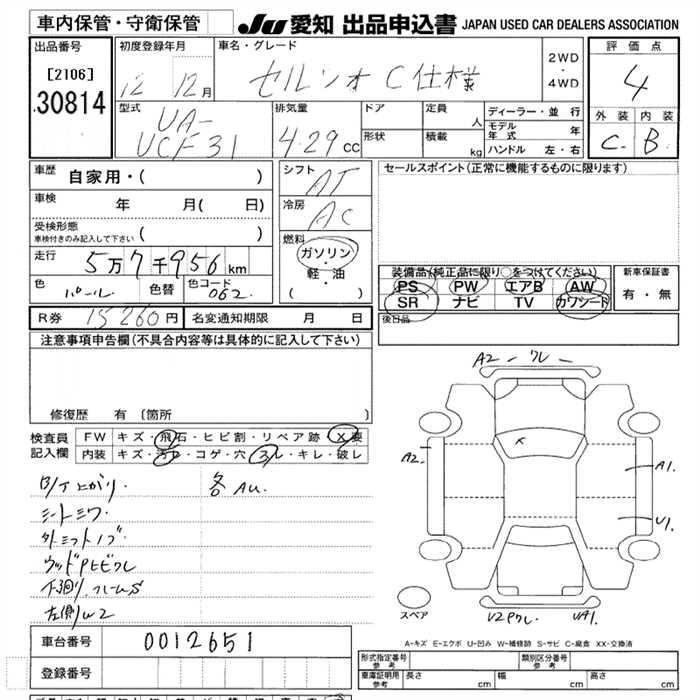 車内保管・守衛保管
JU 愛知 出品申込書 JAPAN USED CAR DEALERS ASSOCIATION
出品番号
[2106]
30814
初度登録年月
12 12月
車名・グレード
セルシオ C仕様
2WD
・
4WD
評価点
4
外装 内装
C B
型式
UA-
UCF31
排気量
4.29 cc
ドア
形状
定員 人
積載 kg
ディーラー・並行
モデル年式 年
ハンドル 左・右
車歴
自家用・( )
車検 年 月( 日)
受検形態
車検付きのみ記入して下さい ( )
走行
5万7千956km
色 パール 色替 色コード 062
シフト AT
冷房 AC
燃料
ガソリン
・
軽・油
( )
セールスポイント(正常に機能するものに限ります)
装備品(純正品に限り○をつけてください)
PS PW エアB AW
SR ナビ TV カワシート
新車保証書
有・無
後日品
R券 15260円 名変通知期限 月 日
注意事項申告欄(不具合内容等は具体的に記入して下さい)
修復歴 有 〔箇所
検査員
記入欄
FW キズ・飛石・ヒビ割・リペア跡・X要
内装 キズ・汚レ・コゲ・穴・スレ・キレ・破レ
B/T上がり.
各AU.
シートシワ
外ミラー
ウッドPヒビワレ
下廻り.フレームS
左側W2
A2-ワレ
A2.
A1.
U1.
スペア
V2Pワレ.
UA1.
A-キズ E-エクボ U-凹み W-補修跡 S-サビ C-腐食 XX-交換済
車台番号 0012651
登録番号
形式指定番号 参考
類別区分番号 参考
車庫証明用 参考 長さ cm 幅 cm 高さ cm